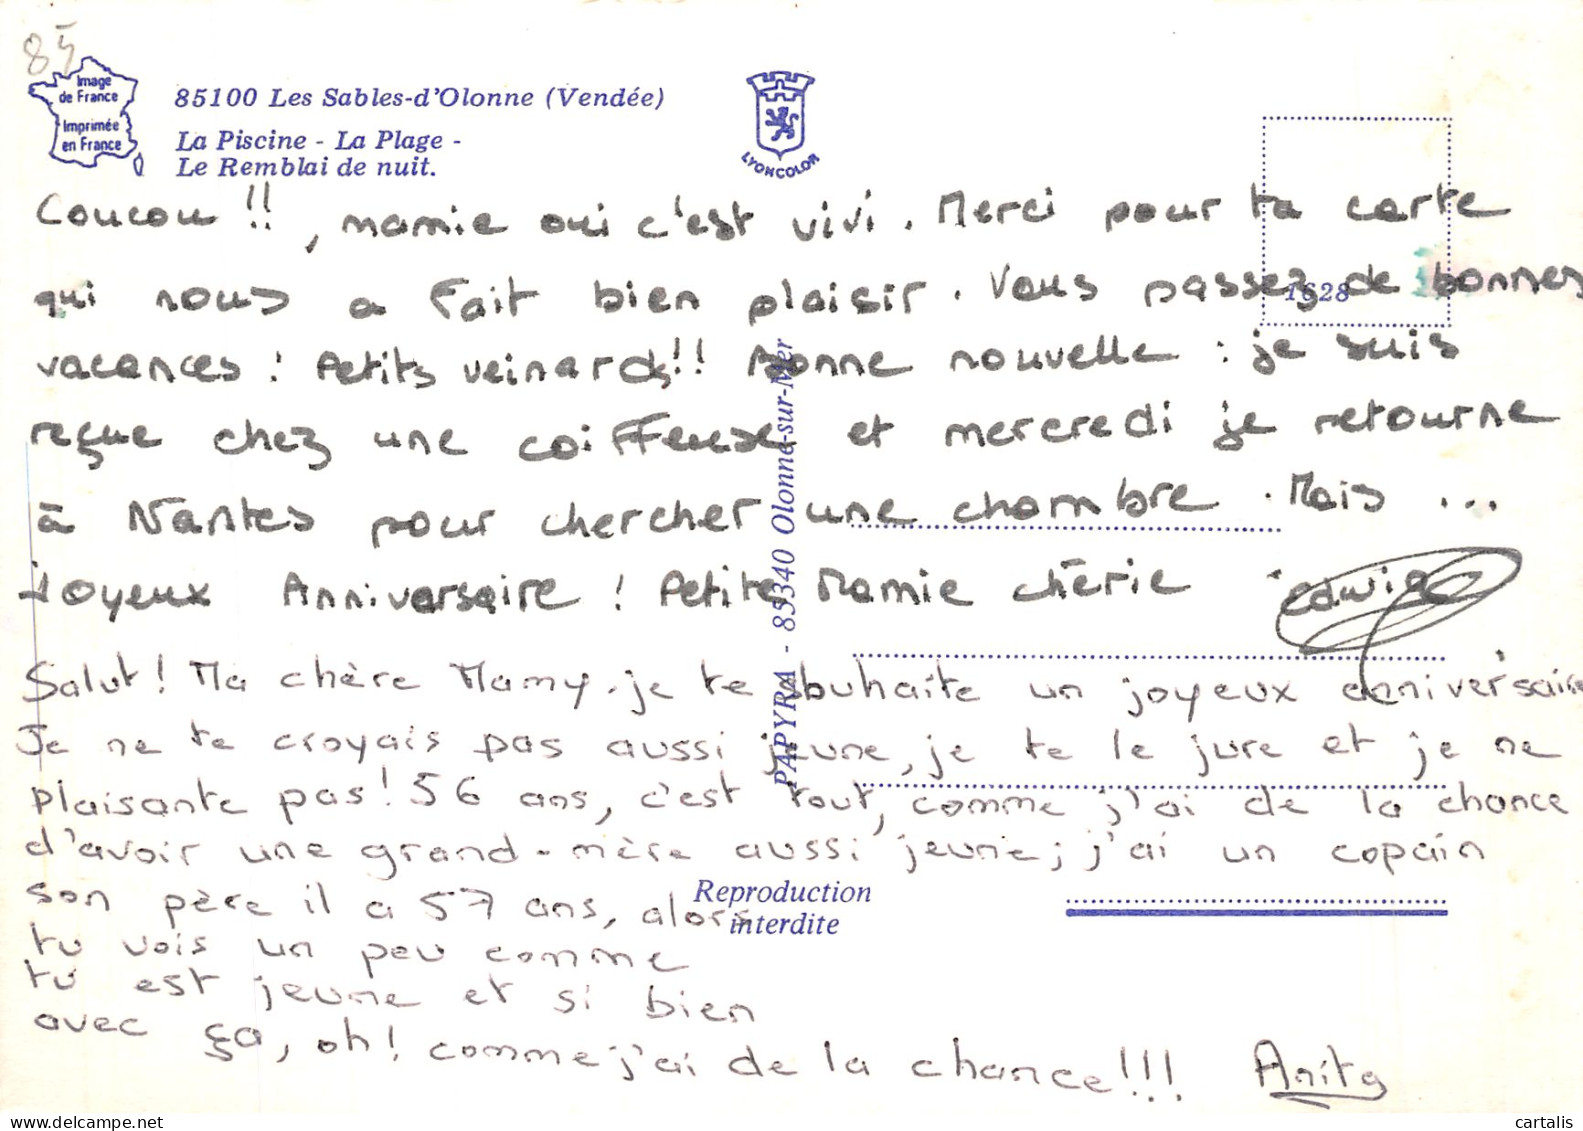 85
Image
de France
Imprimée
en France
85100 Les Sables-d'Olonne (Vendée)
La Piscine - La Plage -
Le Remblai de nuit.
LYONCOLOR
1628
Coucou !!, mamie oui c'est vivi. Merci pour ta carte
qui nous a fait bien plaisir. Vous passez de bonnes
vacances ! Petits veinards!! Bonne nouvelle : je suis
reçue chez une coiffeuse et mercredi je retourne
à Nantes pour chercher une chambre. Mais ...
Joyeux Anniversaire ! Petite Mamie chérie edwige
Salut! Ma chère Mamy. je te souhaite un joyeux anniversaire
Je ne te croyais pas aussi jeune, je te le jure et je ne
plaisante pas! 56 ans, c'est tout, comme j'ai de la chance
d'avoir une grand-mère aussi jeune; j'ai un copain
son père il a 57 ans, alors
tu vois un peu comme
tu est jeune et si bien
avec ça, oh! comme j'ai de la chance!!! Anita
PAPYRA - 85340 Olonne-sur-Mer
Reproduction
interdite
www.delcampe.net
cartalis